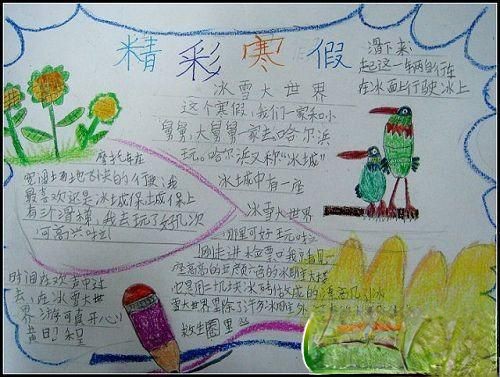 精彩寒假
冰雪大世界
这个寒假,我们一家和小
舅舅、大舅舅一家去哈尔滨
玩。哈尔滨又称“冰城”
冰城中有一座
冰雪大世界
那里可好玩啦
刚走进检票口我只看见一
座高高的五颜六色的冰雕大楼
也是用一块块冰雕
雪大世界里除了许多冰雕外
救生圈里
滑下来
起这一辆自行车
在冰面上行驶冰上
摩托车在
最喜欢还是冰城堡冰城堡上
有3个滑梯,我去玩了好几次
可高兴啦
时间在欢声中过
去,在冰雪大世
界游可真开心